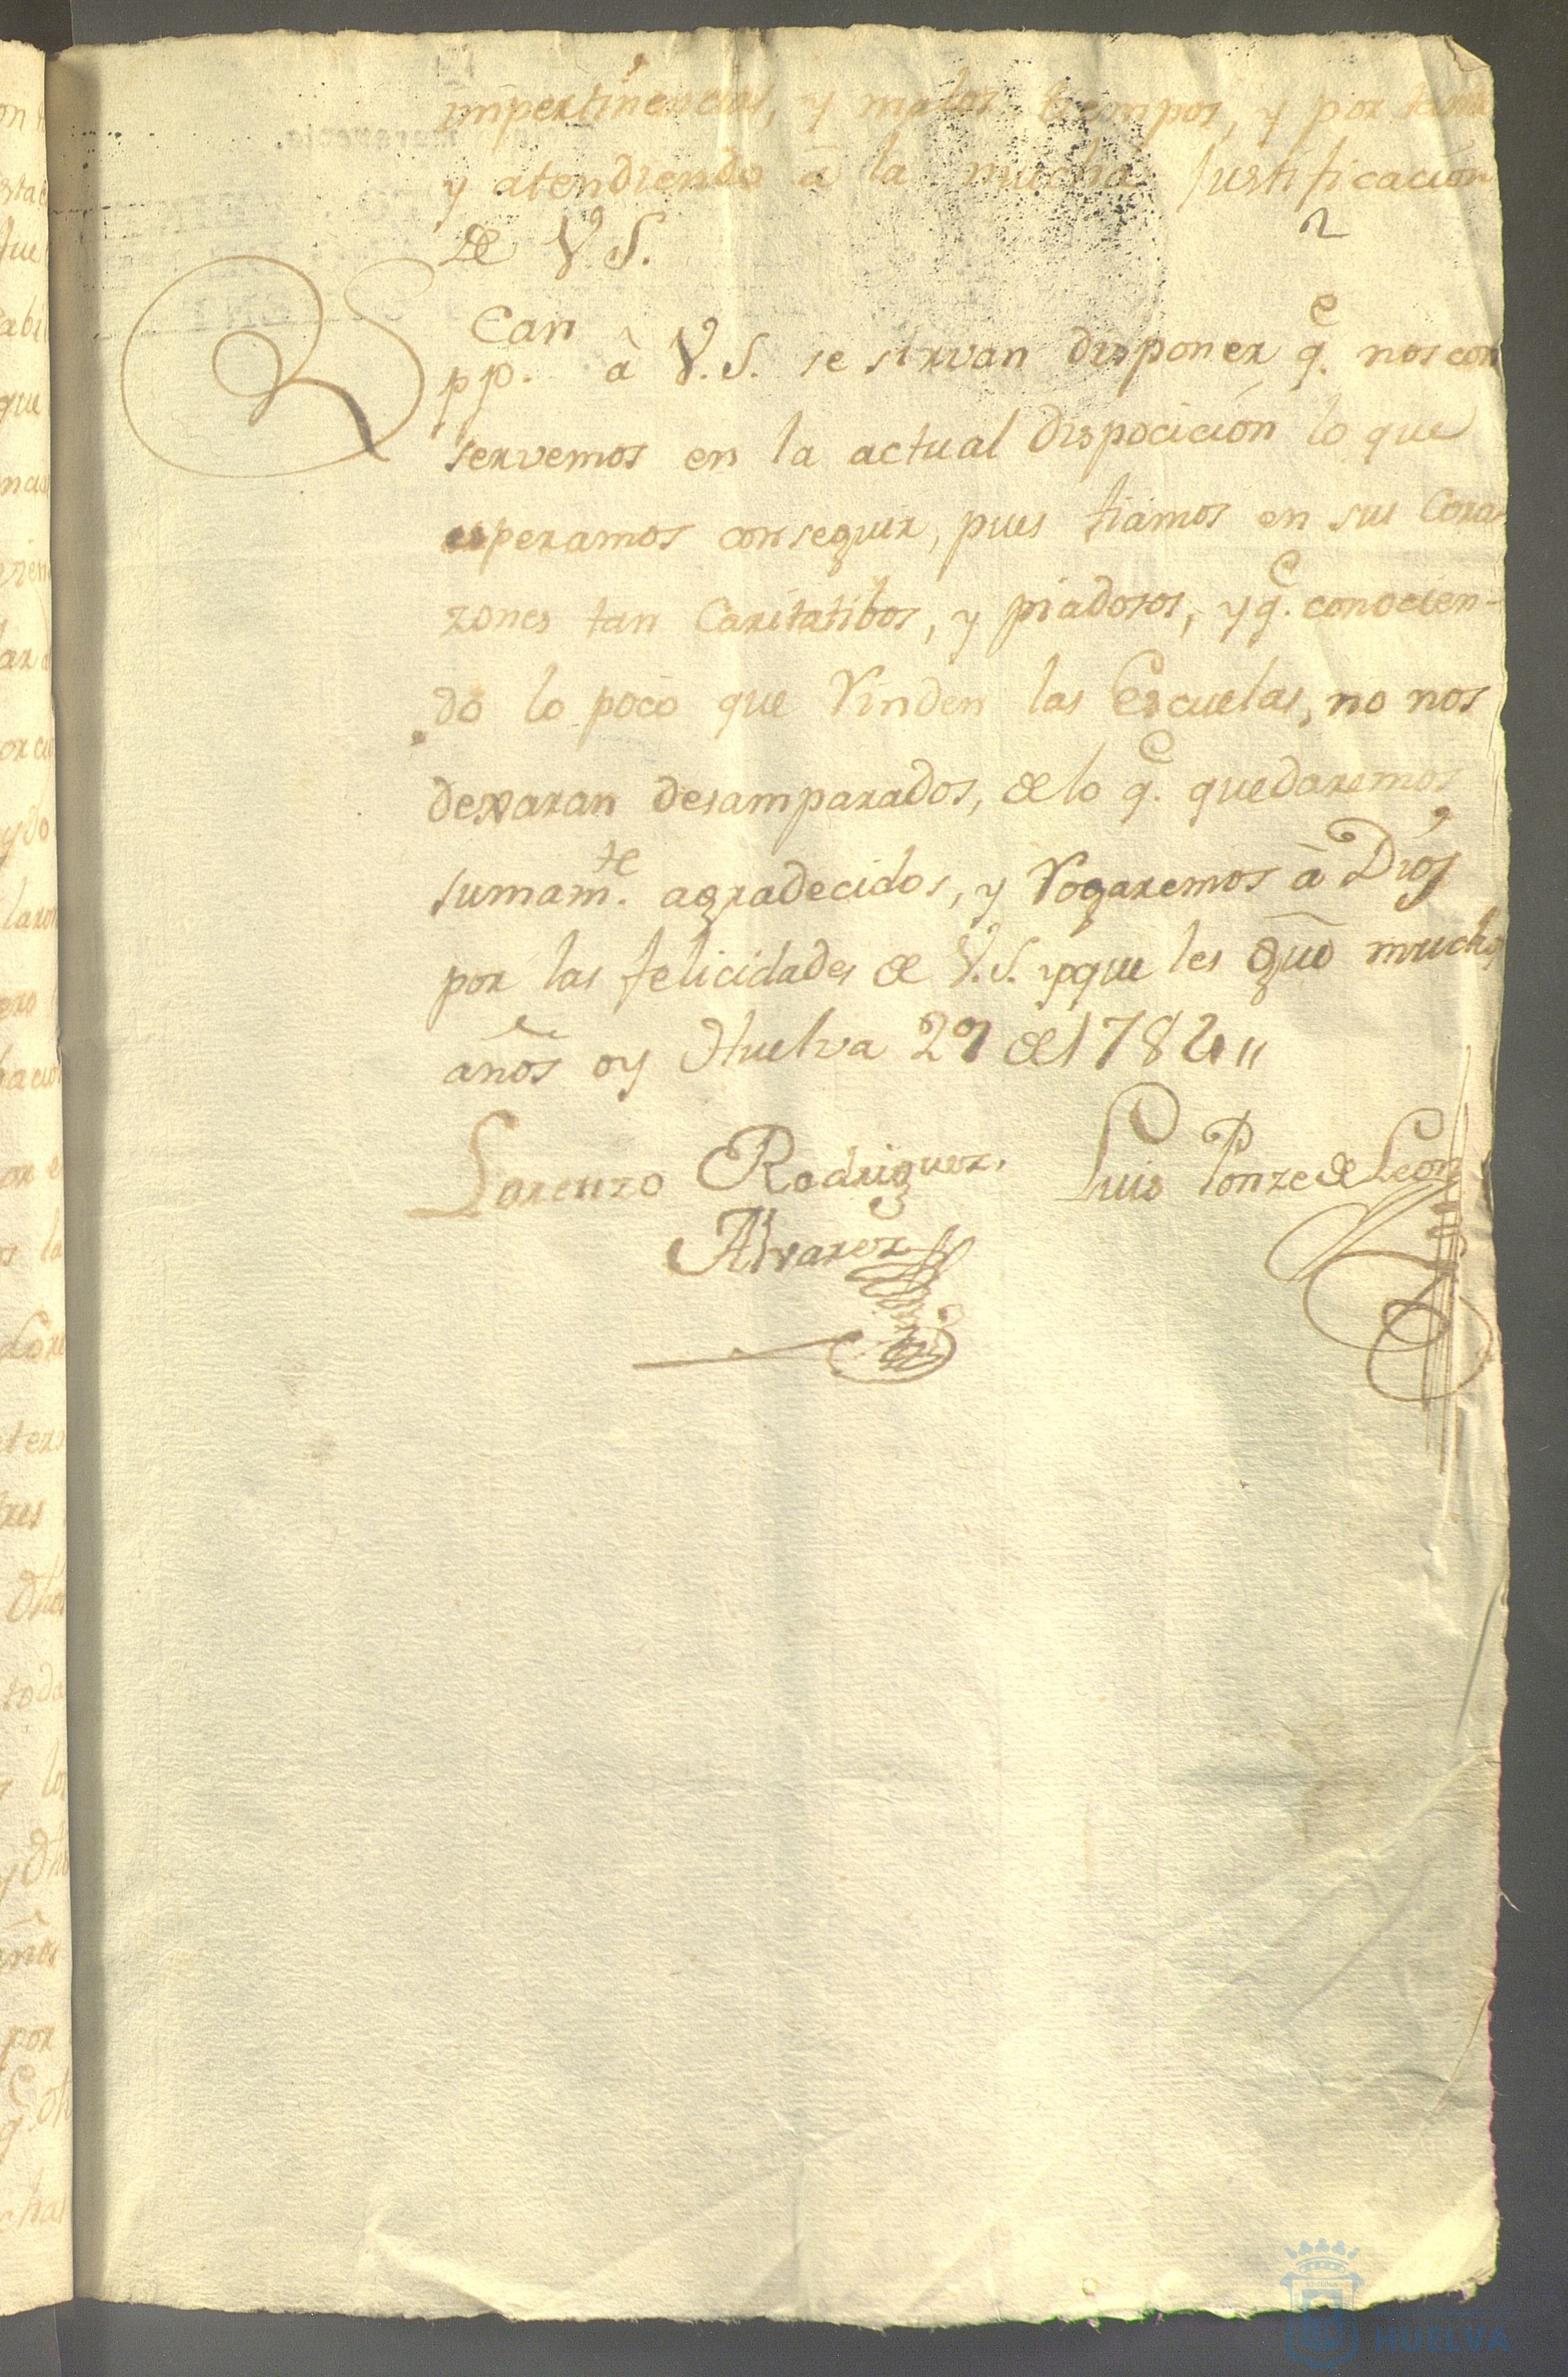 impertinencias, y malos tiempos, y por tanto
y atendiendo à la mucha Justificacion
de V.S.
pp.can à V.S. se sirvan disponer q.e nos con
servemos en la actual dispocicion lo que
esperamos conseguir, pues fiamos en sus Cora-
zones tan Caritatibos, y piadosos, y q.e conocien-
do lo poco que Rinden las Escuelas, no nos
dexaran desamparados, de lo q.e quedaremos
sumam.te agradecidos, y Rogaremos à Dios
por las felicidades de V.S. y que les gu.e muchos
años oy Huelva 27 de 1784
Lorenzo Rodriguez. Luis Ponze de Leon
Alvarez
HUELVA